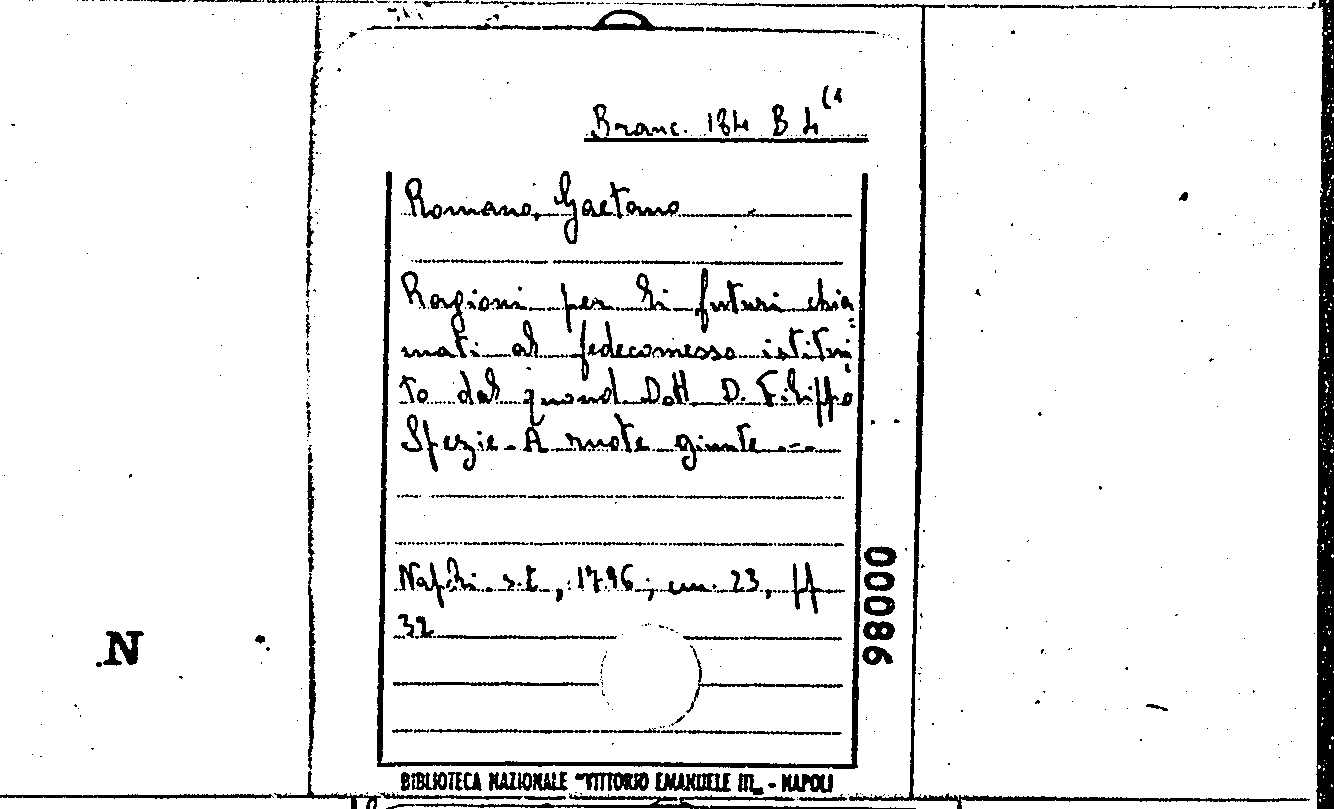 Branc. 184 B 4 (1
Romano, Gaetano
Ragioni per li futuri chia=
mati al fedecomesso istitui
to dal quond. Dott. D. Filippo
Spezie. A ruote giunte.--
Napoli. s.t., 1796; cm. 23, pp
32
00086
N
BIBLIOTECA NAZIONALE "VITTORIO EMANUELE III„ - NAPOLI